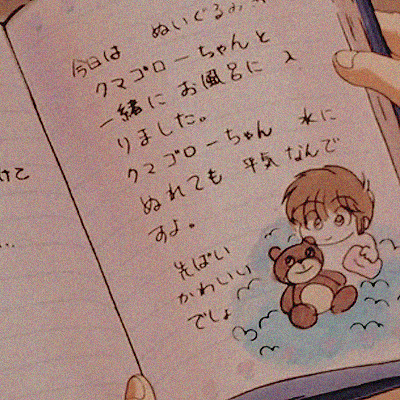 けて
…
今日は ぬいぐるみの
クマゴローちゃんと
一緒に お風呂に 入
りました。
クマゴローちゃん 水に
ぬれても 平気 なんで
すよ。
先ぱい
かわいい
でしょ